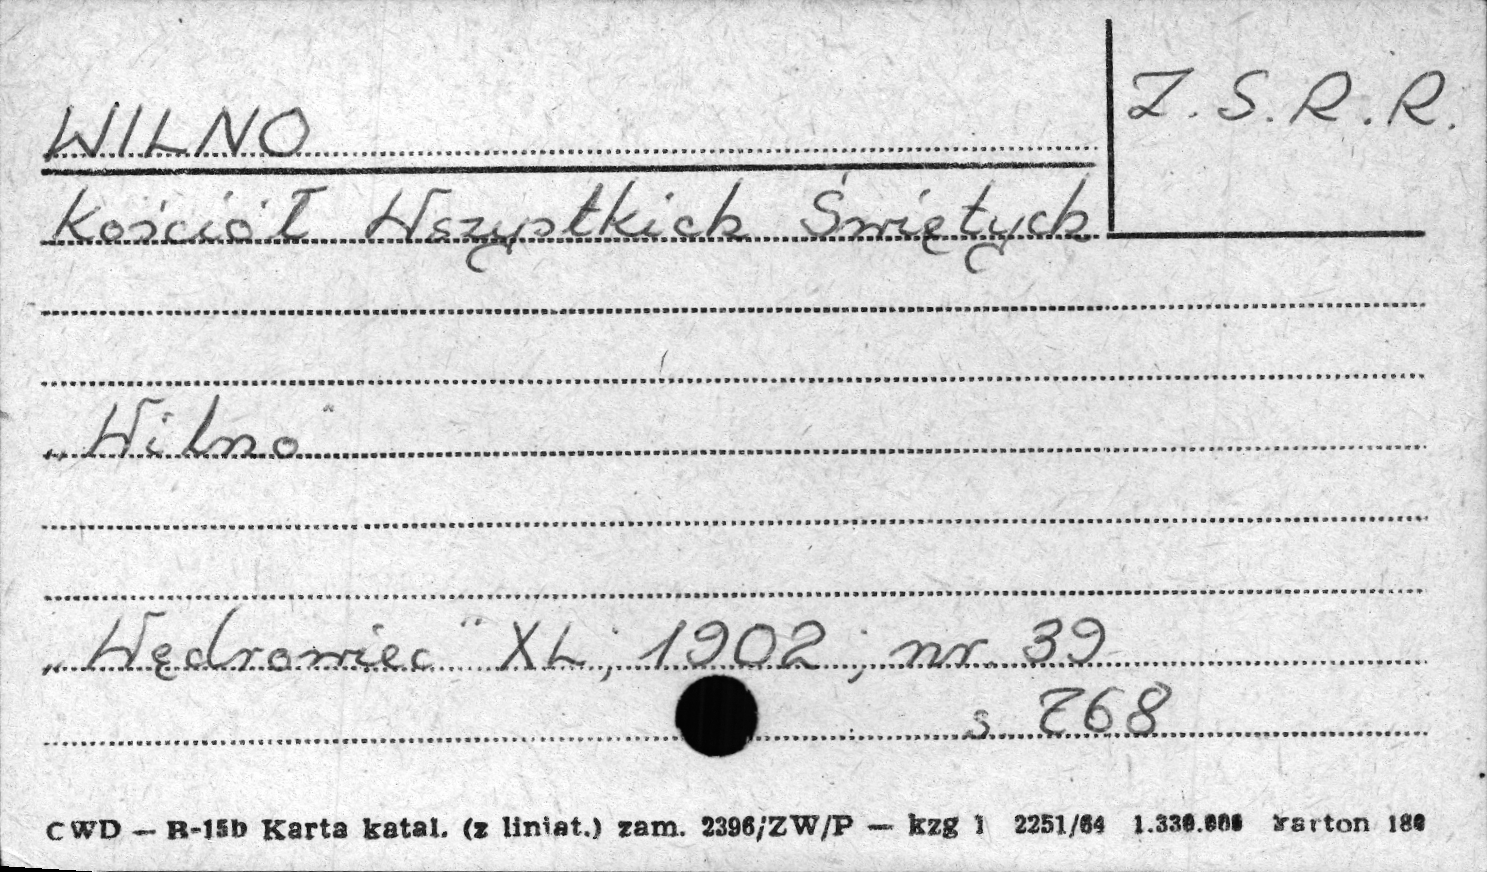 WILNO
Z. S. R. R.
Kościół Wszystkich Świętych
„Wilno"
„Wędrowiec" XL; 1902; nr. 39
s 768
CWD — R-15b Karta katal. (z liniat.) zam. 2396/ZW/P — kzg 1 2251/64 1.330.000 karton 180